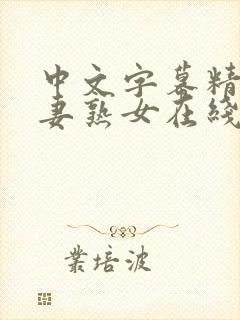 中文字幕精
妻熟女在线
業培波